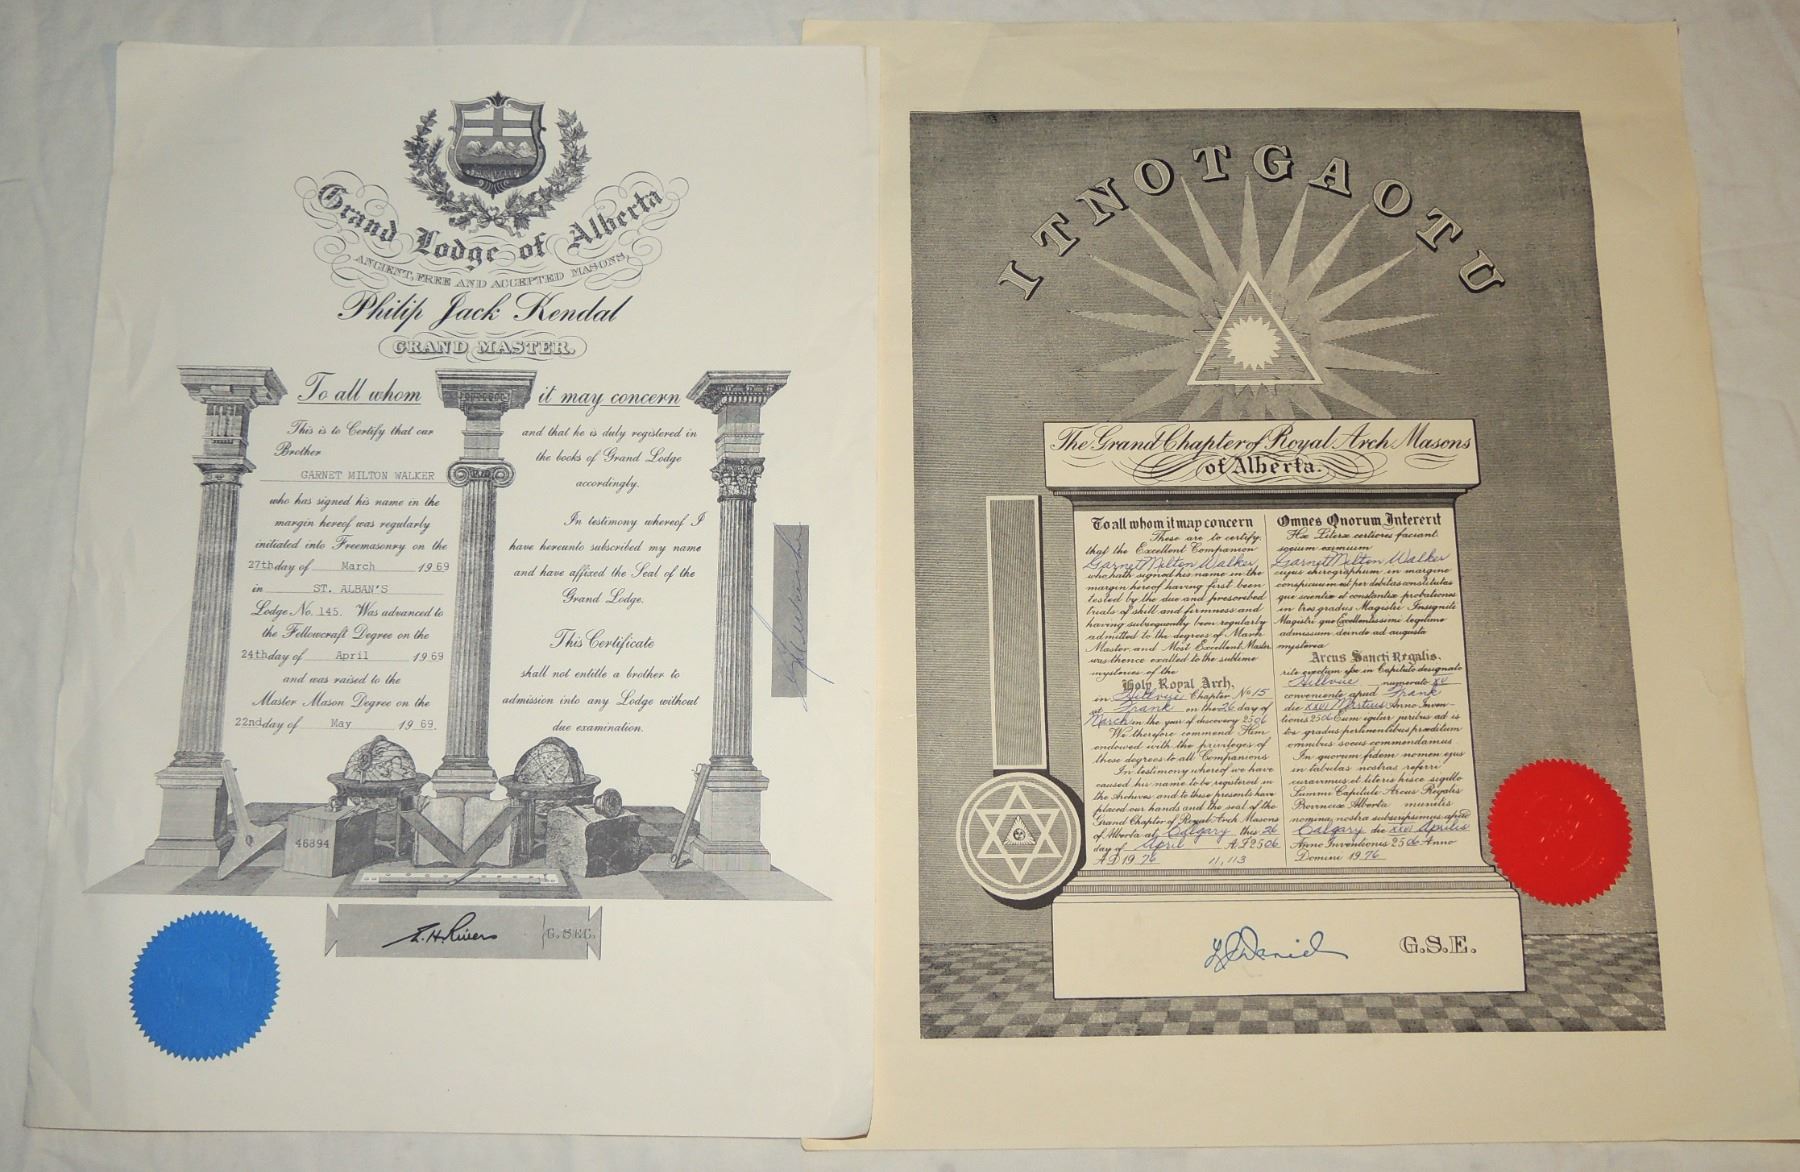 Grand Lodge of Alberta
ANCIENT, FREE AND ACCEPTED MASONS,
Philip Jack Kendal
GRAND MASTER.
To all whom it may concern
This is to Certify that our
Brother
GARNET MILTON WALKER
who has signed his name in the
margin hereof was regularly
initiated into Freemasonry on the
27th day of March 1969
in ST. ALBAN'S
Lodge No. 145. Was advanced to
the Fellowcraft Degree on the
24th day of April 1969
and was raised to the
Master Mason Degree on the
22nd day of May 1969.
and that he is duly registered in
the books of Grand Lodge
accordingly.
In testimony whereof I
have hereunto subscribed my name
and have affixed the Seal of the
Grand Lodge.
This Certificate
shall not entitle a brother to
admission into any Lodge without
due examination.
46894
E.H. Rivers G. SEC.
ITNOTGAOTU
The Grand Chapter of Royal Arch Masons
of Alberta.
To all whom it may concern
These are to certify
that the Excellent Companion
Garnet Milton Walker
who hath signed his name in the
margin hereof having first been
tested by the due and prescribed
trials of skill and firmness and
having subsequently been regularly
admitted to the degrees of Mark
Master, and Most Excellent Master
was thence exalted to the sublime
mysteries of the
Holy Royal Arch,
in Hillvue Chapter No 15
at Frank on the 26 day of
March in the year of discovery 2506
We therefore commend Him
endowed with the privileges of
these degrees to all Companions
In testimony whereof we have
caused his name to be registered in
the Archives and to these presents have
placed our hands and the seal of the
Grand Chapter of Royal Arch Masons
of Alberta at Calgary this 26
day of April A.I. 2506
A.D. 1976 11,113
Omnes Quorum Intererit
Hæ Literæ certiores faciant
socium eximium
Garnet Milton Walker
cujus chirographum in margine
conspicuum est per debitas constitutas
que scientiæ et constantiæ probationes
in tres gradus Magistri Insigniti
Magistri que Excellentissimi legitime
admissum deinde ad augusta
mysteria
Arcus Sancti Regalis,
rite evectum esse in Capitulo designato
Hillvue numerato XV
conveniente apud Frank
die XXVI Martius Anno Inven-
tionis 2506 Cum igitur juribus ad is
tos gradus pertinentibus præditum
omnibus sociis commendamus
In quorum fidem nomen ejus
in tabulas nostras referri
curavimus et literis hisce sigillo
Summi Capituli Arcus Regalis
Provinciæ Alberta munitis
nomina nostra subscripsimus apud
Calgary die XXVI Aprilis
Anno Inventionis 2506 Anno
Domini 1976
G.S.E.